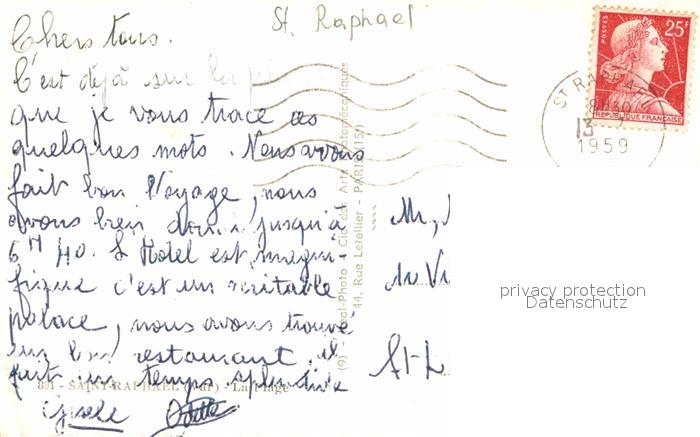 St. Raphael
Chers tous.
C'est déjà sur la
que je vous trace ces
quelques mots. Nous avons
fait bon voyage, nous
avons bien dormi jusqu'à
6 H 40. L'Hotel est magni-
fique c'est un veritable
palace, nous avons trouvé
un bon restaurant, il
fait un temps splendide
Gisele Odette
831 - SAINT-RAPHAEL (Var) - La Plage
44, Rue Letellier - PARIS (15e)
POSTES
25F
REPUBLIQUE FRANÇAISE
ST RAPHAEL
8H30
13
1959
privacy protection
Datenschutz